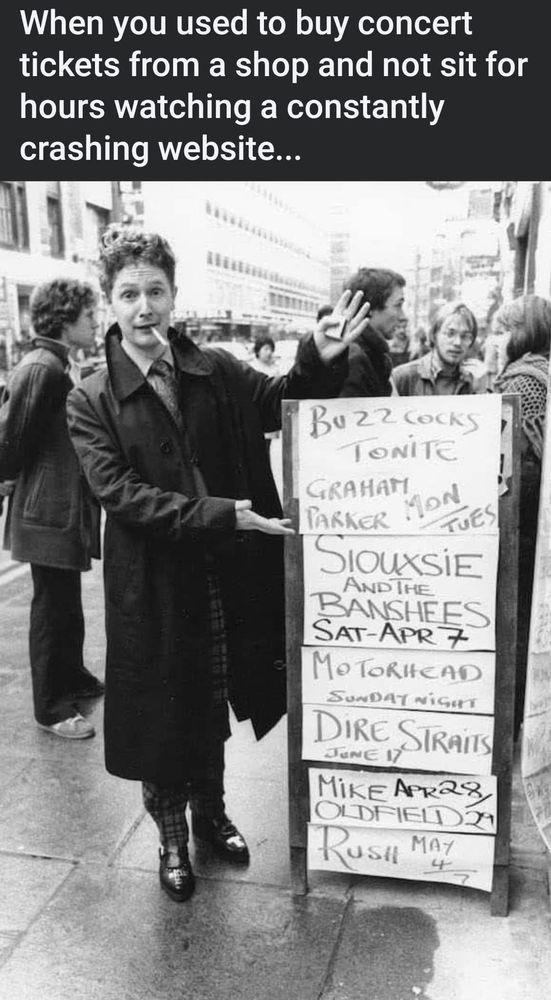 When you used to buy concert
tickets from a shop and not sit for
hours watching a constantly
crashing website...
BUZZCOCKS
TONITE
GRAHAM
PARKER MON
/TUES
SIOUXSIE
AND THE
BANSHEES
SAT-APR 7
MOTORHEAD
SUNDAY NIGHT
DIRE STRAITS
JUNE 17
MIKE APR 28/
OLDFIELD 29
RUSH MAY
4
7